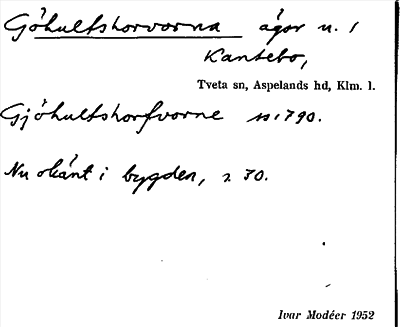 Gjöhultshorvorna ägor n. 1
Kantebo,
Tveta sn, Aspelands hd, Klm. l.
Gjöhultshorfvorne 1790.
Nu okänt i bygden, s 70.
Ivar Modéer 1952